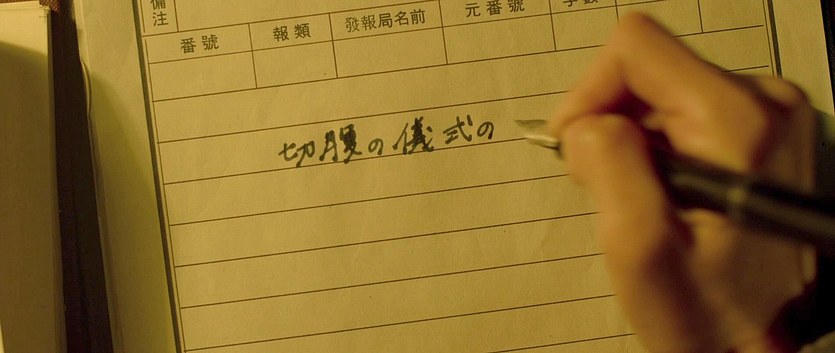 備注
番號 報類 發報局名前 元番號 字數
切腹の儀式の